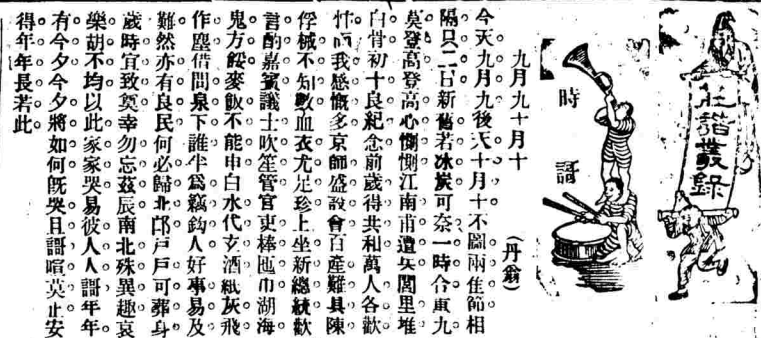 莊諧叢錄
時謌
九月九十月十
（丹翁）
今天九月九後天十月十不圖兩佳節相
隔只二日新舊若冰炭可奈一時合重九
莫登高登高心惻惻江南甫遭兵閭里堆
白骨初十良紀念前歲得共和萬人各歡
忭而我感慨多京師盛設會百產難具陳
俘械不知數血衣尤足珍上坐新總統歡
言酌嘉賓議士吹笙管官吏棒匜巾湖海
鬼方餒麥飯不能申白水代玄酒紙灰飛
作塵借問泉下誰半爲竊鈎人好事易及
難然亦有良民何必歸北邙戶戶可葬身
歲時宜致奠幸勿忘茲辰南北殊異趣哀
樂胡不均以此家家哭易彼人人謌年年
有今夕今夕將如何旣哭且謌喧莫止安
得年年長若此